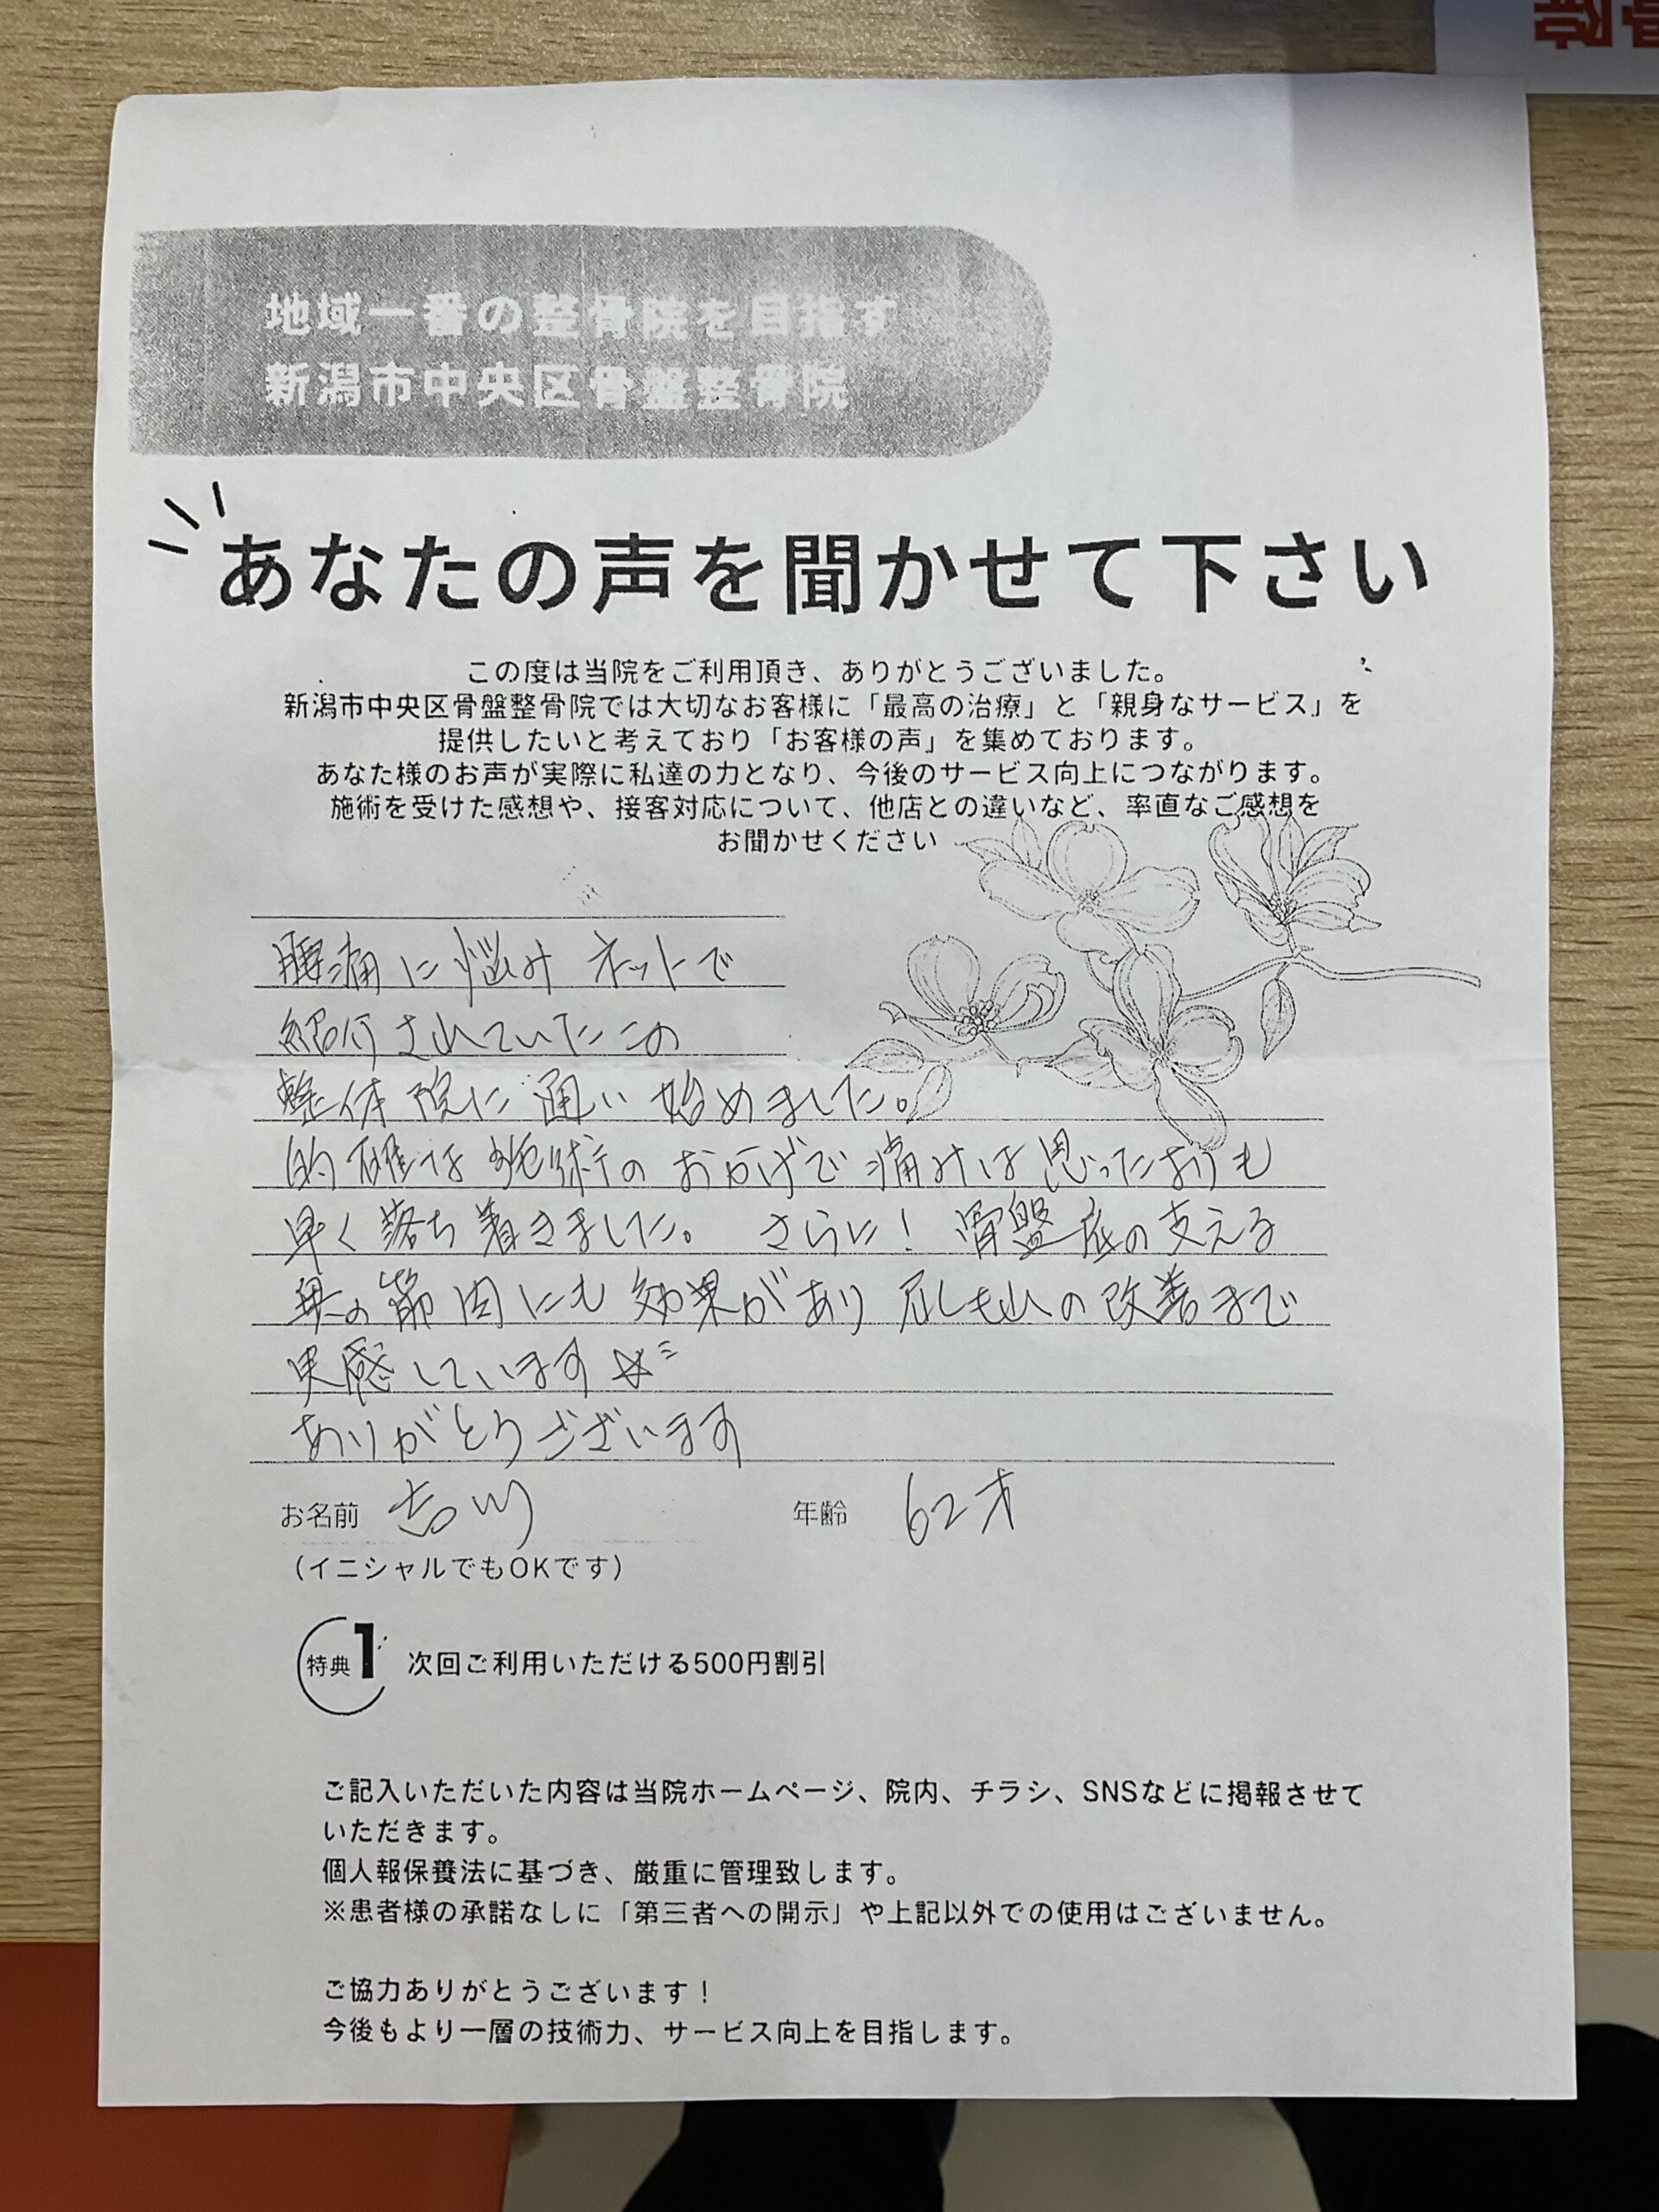 地域一番の整骨院を目指す
新潟市中央区骨盤整骨院
あなたの声を聞かせて下さい
この度は当院をご利用頂き、ありがとうございました。
新潟市中央区骨盤整骨院では大切なお客様に「最高の治療」と「親身なサービス」を
提供したいと考えており「お客様の声」を集めております。
あなた様のお声が実際に私達の力となり、今後のサービス向上につながります。
施術を受けた感想や、接客対応について、他店との違いなど、率直なご感想を
お聞かせください
腰痛に悩み ネットで
紹介されていたこの
整体院に通い始めました。
的確な施術のおかげで痛みは思ったよりも
早く落ち着きました。 さらに！ 骨盤底の支える
奥の筋肉にも効果があり 尿もれの改善まで
実感しています☆
ありがとうございます
お名前 吉川 年齢 62才
（イニシャルでもOKです）
特典1 次回ご利用いただける500円割引
ご記入いただいた内容は当院ホームページ、院内、チラシ、SNSなどに掲報させて
いただきます。
個人報保養法に基づき、厳重に管理致します。
※患者様の承諾なしに「第三者への開示」や上記以外での使用はございません。
ご協力ありがとうございます！
今後もより一層の技術力、サービス向上を目指します。